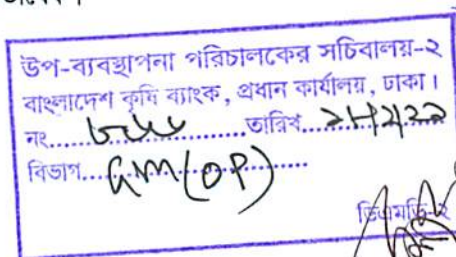 উপ-ব্যবস্থাপনা পরিচালকের সচিবালয়-২
বাংলাদেশ কৃষি ব্যাংক, প্রধান কার্যালয়, ঢাকা।
নং..................তারিখ..................
বিভাগ....GM(OP)
ডিএমডি-২